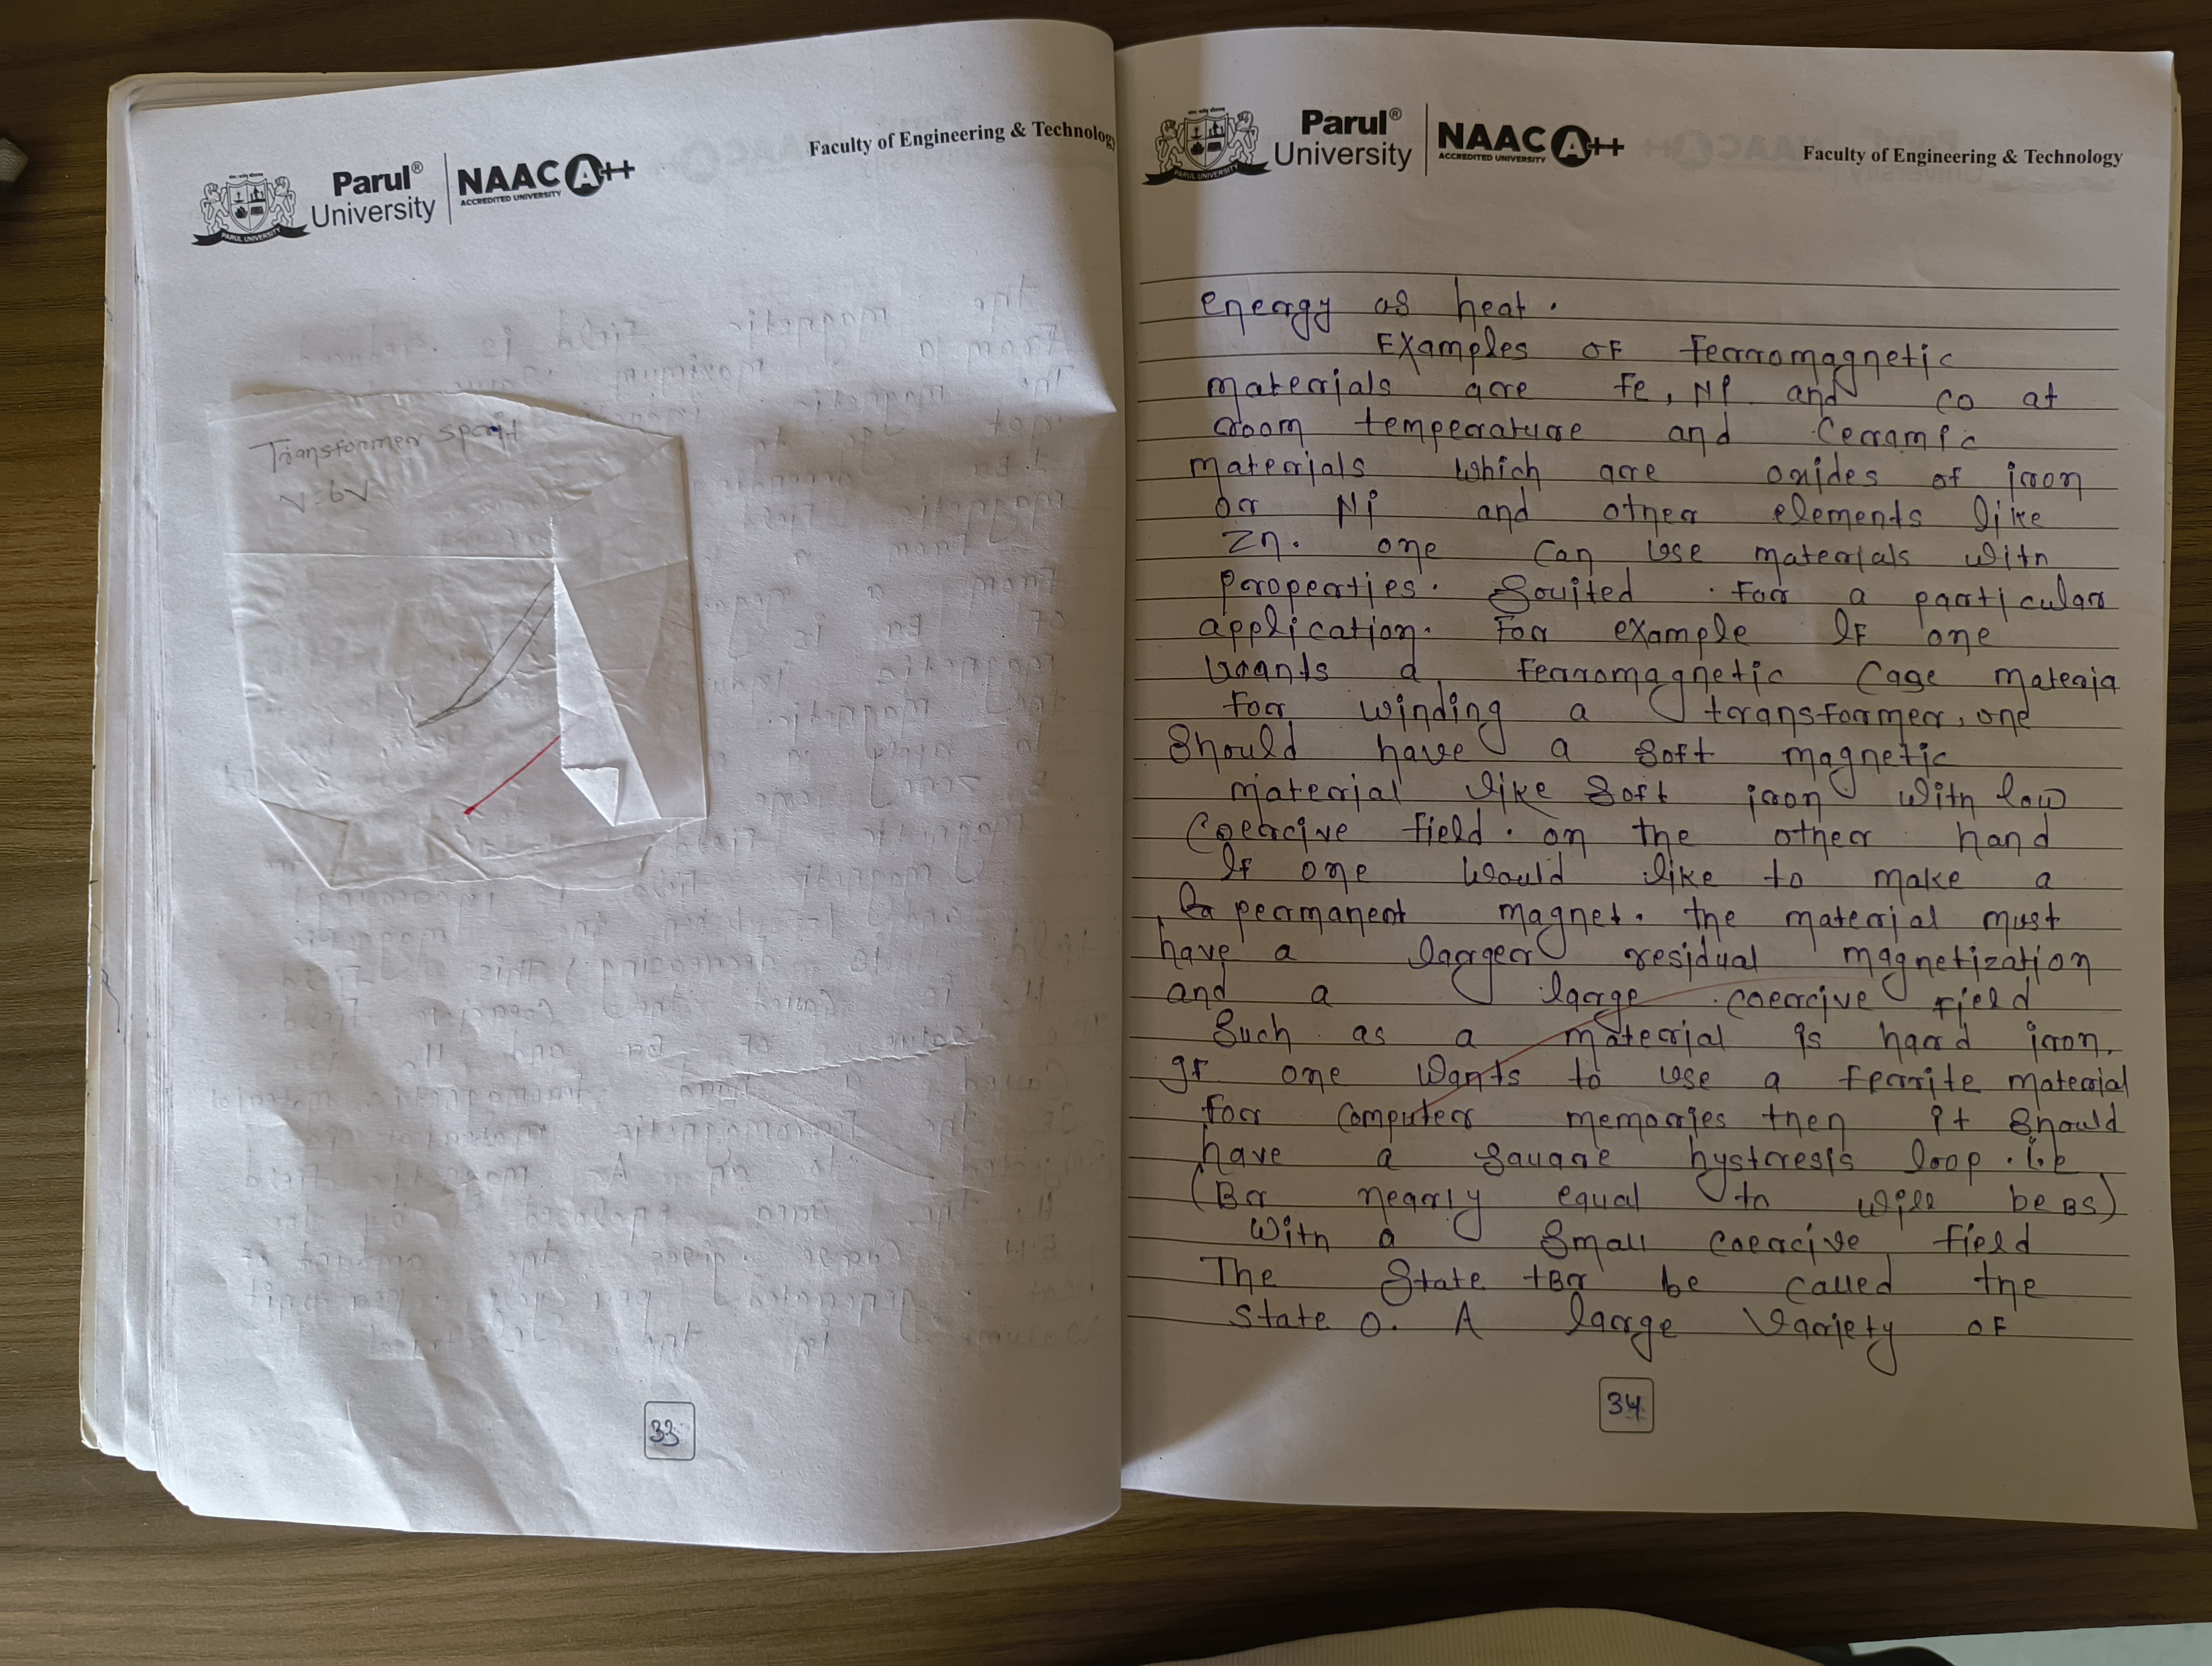 Parul® University
NAAC A++
ACCREDITED UNIVERSITY
PARUL UNIVERSITY
Faculty of Engineering & Technology
Transformer
V=6V
33
Parul® University
NAAC A++
ACCREDITED UNIVERSITY
PARUL UNIVERSITY
Faculty of Engineering & Technology
energy as heat.
Examples of ferromagnetic
materials are Fe, Ni and co at
room temperature and Ceramic
materials which are oxides of iron
or Ni and other elements like
Zn. one can use materials with
properties. Souited for a particular
application. For example If one
wants a ferromagnetic Cage materia
for winding a transformer, one
Should have a soft magnetic
material like soft iron with low
Coercive field. on the other hand
If one would like to make a
permanent magnet. the material must
have a larger residual magnetization
and a large coercive field
Such as a material is hard iron.
If one wants to use a ferrite material
for computer memories then it should
have a sauare hysteresis loop. i.e
(Br nearly equal to will be BS)
with a small coercive field
The State +Br be called the
state 0. A large variety of
34